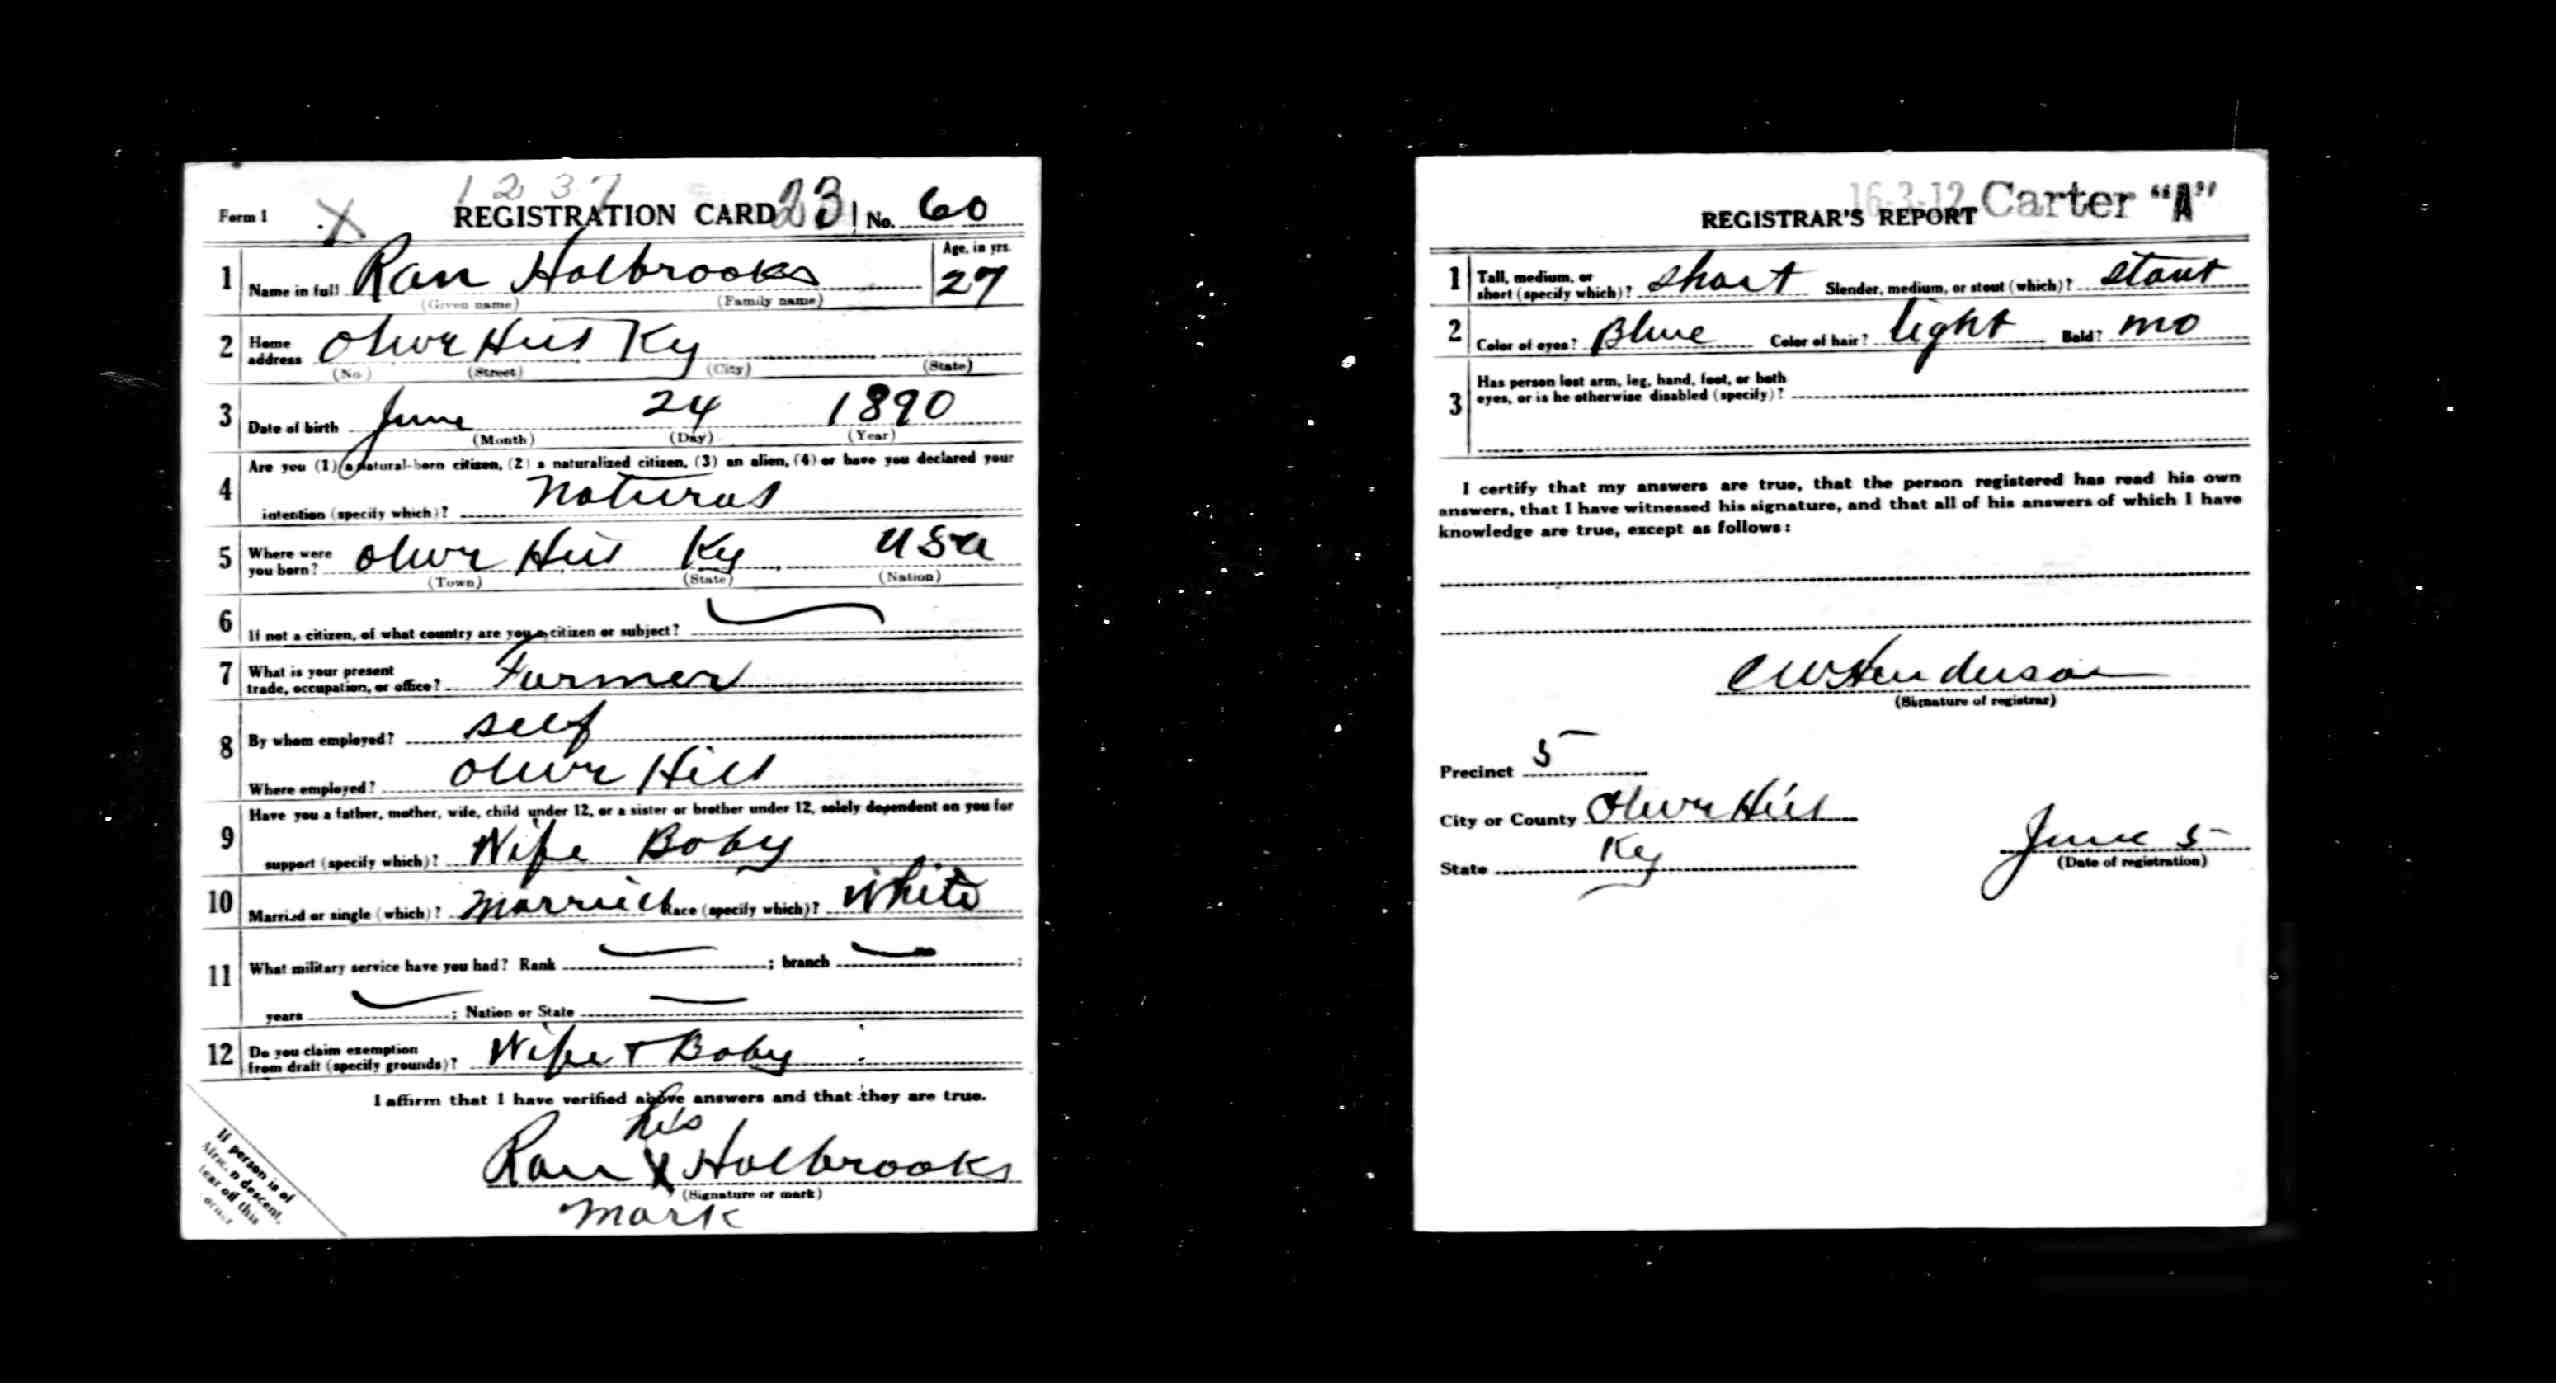 1237
Form 1 X REGISTRATION CARD 23 No. 60
1 Name in full Ran Holbrooks Age, in yrs. 27
(Given name) (Family name)
2 Home address Olive Hill Ky
(No.) (Street) (City) (State)
3 Date of birth June 24 1890
(Month) (Day) (Year)
4 Are you (1) a natural-born citizen, (2) a naturalized citizen, (3) an alien, (4) or have you declared your
intention (specify which)? Natural
5 Where were you born? Olive Hill Ky USA
(Town) (State) (Nation)
6 If not a citizen, of what country are you a citizen or subject?
7 What is your present trade, occupation, or office? Farmer
8 By whom employed? self
Where employed? Olive Hill
9 Have you a father, mother, wife, child under 12, or a sister or brother under 12, solely dependent on you for
support (specify which)? Wife Baby
10 Married or single (which)? Married Race (specify which)? White
11 What military service have you had? Rank ; branch ;
years ; Nation or State
12 Do you claim exemption from draft (specify grounds)? Wife + Baby
I affirm that I have verified above answers and that they are true.
his
Ran X Holbrooks
(Signature or mark)
mark
If person is of
African descent,
tear off this
corner
16-3-12 Carter "A"
REGISTRAR'S REPORT
1 Tall, medium, or short (specify which)? short Slender, medium, or stout (which)? stout
2 Color of eyes? Blue Color of hair? light Bald? no
3 Has person lost arm, leg, hand, foot, or both
eyes, or is he otherwise disabled (specify)?
I certify that my answers are true, that the person registered has read his own
answers, that I have witnessed his signature, and that all of his answers of which I have
knowledge are true, except as follows:
C W Henderson
(Signature of registrar)
Precinct 5
City or County Olive Hill
State Ky June 5
(Date of registration)